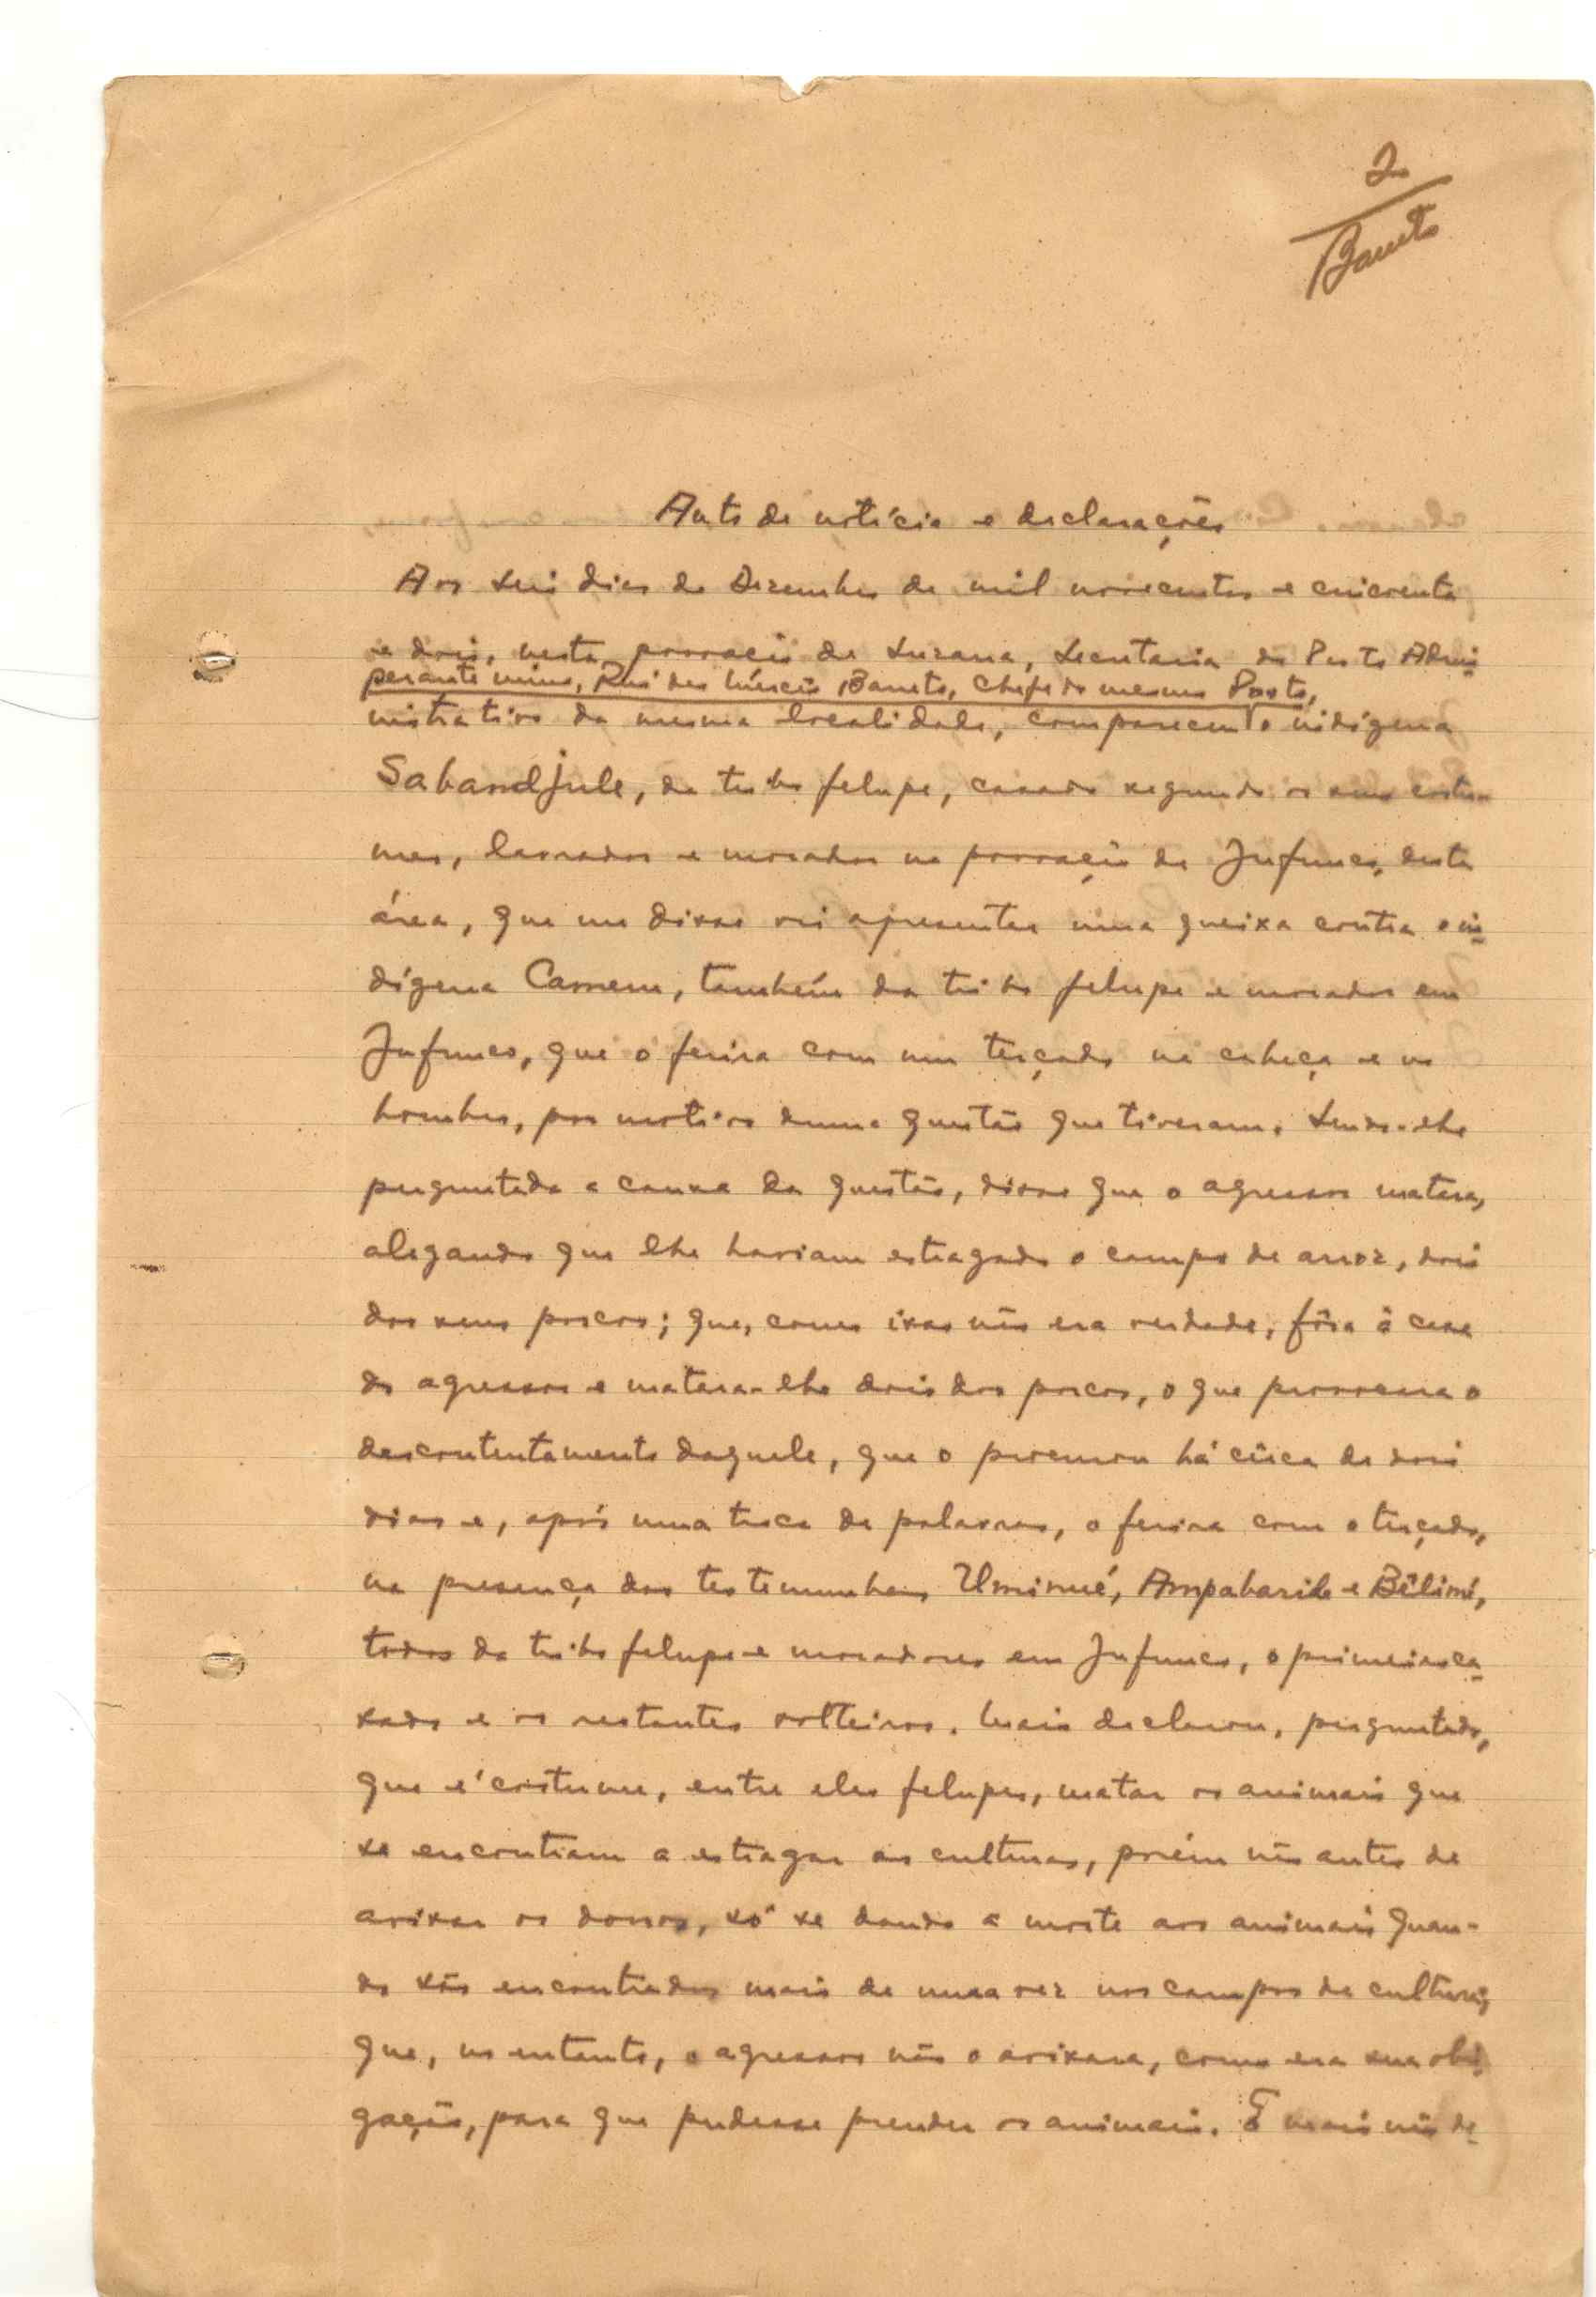 2
Barreto
Auto de notícia e declarações
Aos seis dias de Dezembro de mil novecentos e cincoenta
e dois, nesta povoação de Suzana, Secretaria do Posto Admi-
perante mim, Rui                Barreto, Chefe do mesmo Posto,
nistrativo da mesma localidade, compareceu o indígena
Sabandjule, da tribo felupe, casado segundo os seus costu-
mes, lavrador e morador na povoação de Jufunco, desta
área, que me disse vir apresentar uma queixa contra o in-
dígena Camem, também da tribo felupe e morador em
Jufunco, que o ferira com um terçado na cabeça e no
hombro, por motivo duma questão que tiveram. Sendo-lhe
perguntada a causa da questão, disse que o agressor matara,
alegando que lhe haviam estragado o campo de arroz, dois
dos seus porcos; que, como isso não era verdade, fôra à casa
do agressor e matara-lhe dois dos porcos, o que provocara o
descontentamento daquele, que o procurou há cêrca de dois
dias e, após uma troca de palavras, o ferira com o terçado,
na presença das testemunhas Uminué, Ampabarile e Bêlimé,
todos da tribo felupe e moradores em Jufunco, o primeiro ca-
sado e os restantes solteiros. Mais declarou, perguntado,
que é costume, entre eles felupes, matar os animais que
se encontram a estragar as culturas, porém não antes de
avisar os donos, só se dando a morte aos animais quan-
do são encontrados mais de uma vez nos campos de cultura;
que, no entanto, o agressor não o avisara, como era sua obri-
gação, para que pudesse prender os animais. E mais não de-